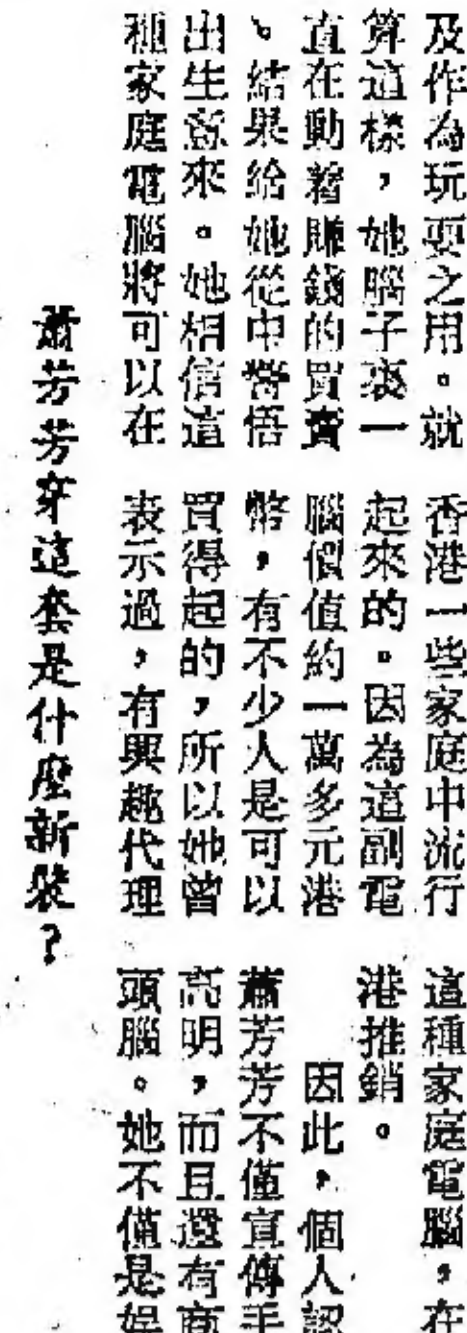 及作為玩耍之用。就
算這樣，她腦子裏一
直在動着賺錢的買賣
。結果給她從中警悟
出生意來。她相信這
種家庭電腦將可以在
香港一些家庭中流行
起來的。因為這副電
腦價值約一萬多元港
幣，有不少人是可以
買得起的，所以她曾
表示過，有興趣代理
這種家庭電腦，在
港推銷。
因此，個人認
蕭芳芳不僅宣傳手
高明，而且還有商
頭腦。她不僅是娛
蕭芳芳穿這套是什麼新裝？